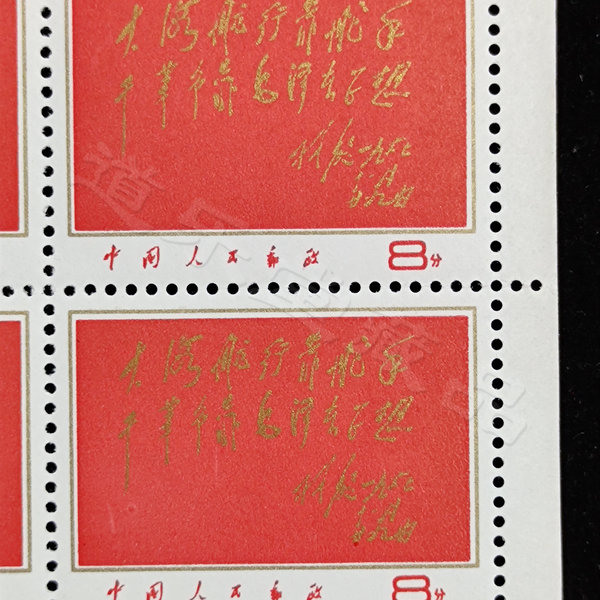 大海航行靠舵手
干革命靠毛泽东思想
林彪 一九六七
中国人民邮政 8分
大海航行靠舵手
干革命靠毛泽东思想
林彪 一九六七
中国人民邮政 8分
道乐 藏品